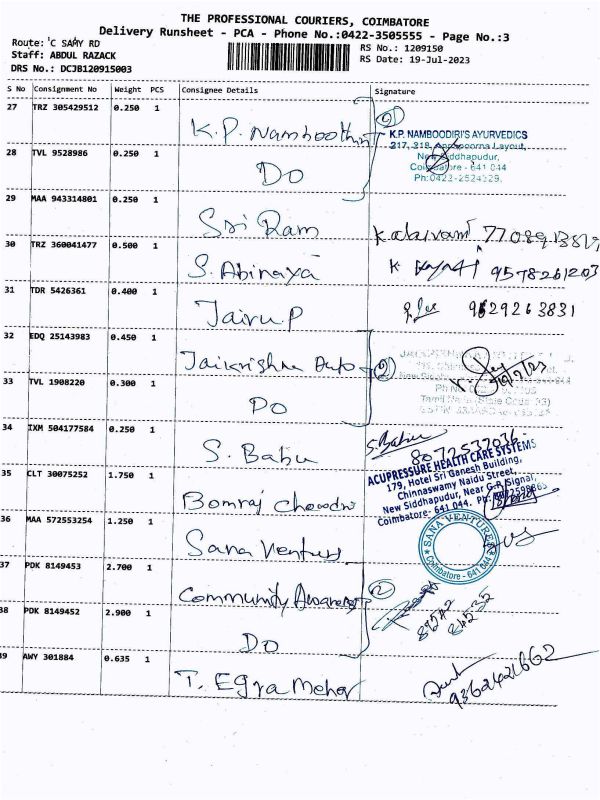 THE PROFESSIONAL COURIERS, COIMBATORE
Delivery Runsheet - PCA - Phone No.:0422-3505555 - Page No.:3
Route: 'C SAMY RD
Staff: ABDUL RAZACK
DRS No.: DCJB120915003
RS No.: 1209150
RS Date: 19-Jul-2023
S No Consignment No Weight PCS Consignee Details Signature
27 TRZ 305429512 0.250 1 K.P. Namboothiri (2)
K.P. NAMBOODIRI'S AYURVEDICS
217, 218, Layout,
New Siddhapudur,
Coimbatore - 641 044
Ph:0422-2524229.
28 TVL 9528986 0.250 1 DO
29 MAA 943314801 0.250 1 Sri Ram Kalaivani
30 TRZ 360041477 0.500 1 S. Abinaya K 9578261203
31 TDR 5426361 0.400 1 Jairu P 9629263831
32 EDQ 25143983 0.450 1 Jaikrishna Auto (2)
33 TVL 1908220 0.300 1 DO
34 IXM 504177584 0.250 1 S. Babu S. Babu
8072537036
35 CLT 30075252 1.750 1 Bomraj
ACUPRESSURE HEALTH CARE SYSTEMS
179, Hotel Sri Ganesh Building,
Chinnaswamy Naidu Street,
New Siddhapudur, Near G.P. Signal,
Coimbatore- 641 044. Ph:
36 MAA 572553254 1.250 1 Sana Ventures
SANA VENTURES
Coimbatore - 641 044
37 PDK 8149453 2.700 1 Community Awareness (2)
38 PDK 8149452 2.900 1 DO
39 AWY 301884 0.635 1 T. Egra Mehor
9362421662